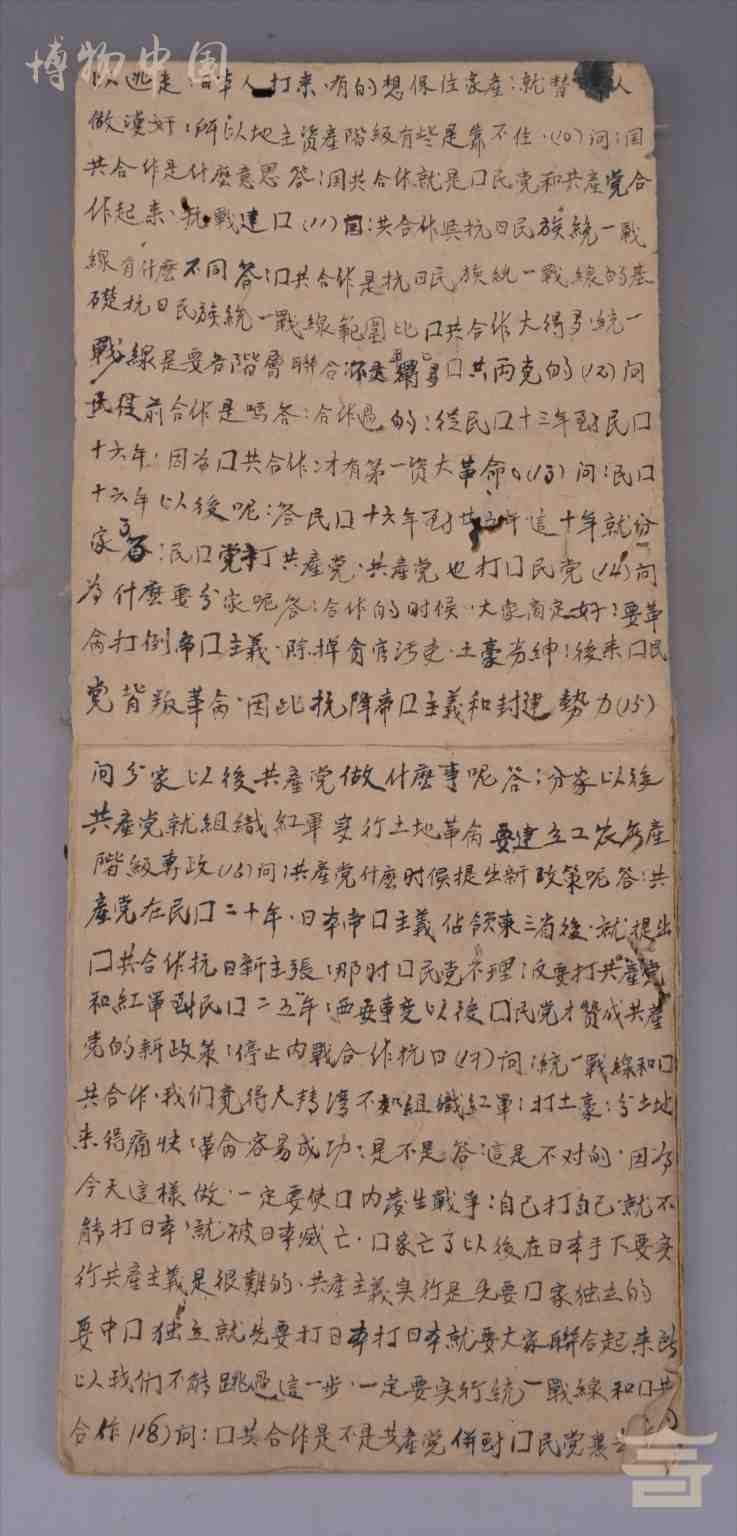 博物中国
以逃走：日本人打来、有的想保住家産：就替人
做漢奸：所以地主資產階級有些是靠不住、(10)问：国
共合作是什麽意思答：国共合作就是口民党和共產党合
作起来、抗戰建口(11)国：共合作與抗日民族統一戰
線有什麽不同答：口共合作是抗日民族統一戰線的基
礎抗日民族統一戰線範圍比口共合作大得多、統一
戰線是要各階層聯合口共两党的(12)问
從前合作是嗎答：合作過的：從民口十三年到民口
十六年、因为口共合作：才有第一资大革命。(13)问：民口
十六年以後呢：答民口十六年到廿五年這十年就分
家了：民口党打共產党、共產党也打口民党(14)问
为什麽要分家呢答：合作的时候、大家商定好：要革
命打倒帝口主義、除掉貪官污吏、土豪劣紳：後来口民
党背叛革命、因此抗降帝口主義和封建勢力(15)
问分家以後共產党做什麽事呢答：分家以後
共產党就組織紅軍实行土地革命要建立工农無產
階級專政(16)问：共產党什麽时候提出新政策呢答：共
產党在民口二十年、日本帝口主義佔領東三省後、就提出
口共合作抗日新主張：那时口民党不理：反要打共產党
和紅軍到民口二五年：西安事变以後口民党才贊成共產
党的新政策：停止内戰合作抗日(17)问：統一戰線和口
共合作、我们竟得不如組織紅軍：打土豪：分土地
来得痛快：革命容易成功：是不是答：這是不对的、因为
今天這樣做、一定要使口内發生戰爭：自己打自己、就不
能打日本、就被日本滅亡、口家亡了以後在日本手下要实
行共產主義是很難的、共產主義实行是先要口家独立的
要中口独立就先要打日本打日本就要大家聯合起来所
以我们不能跳過這一步、一定要实行統一戰線和口共
合作(18)问：口共合作是不是共產党併到口民党裏去